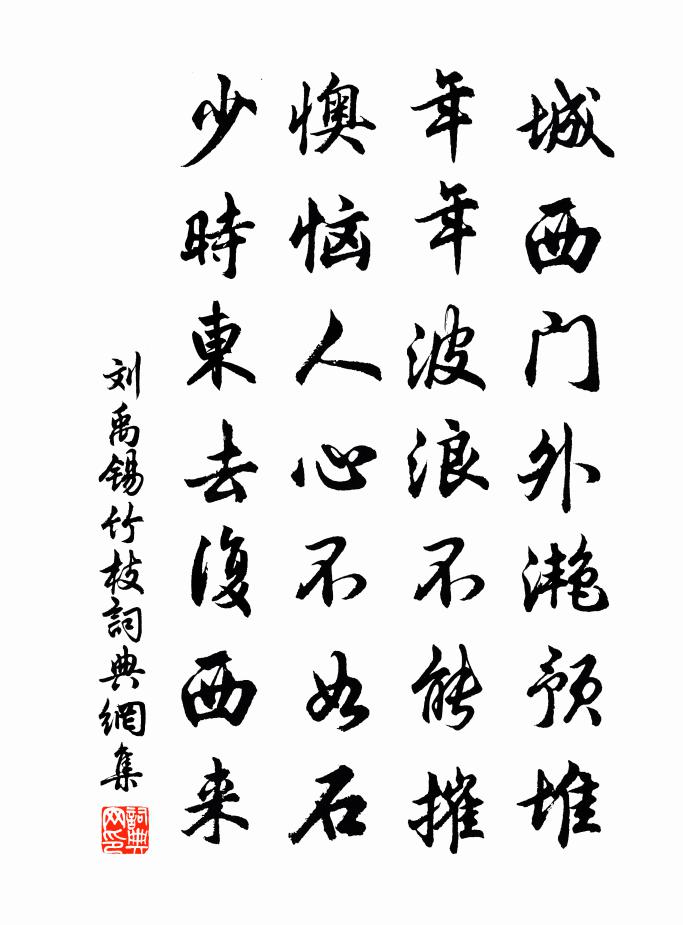 城西门外滟预堆
年年波浪不能摧
懊恼人心不如石
少時東去復西来
刘禹锡竹枝詞典網集
詞典網印